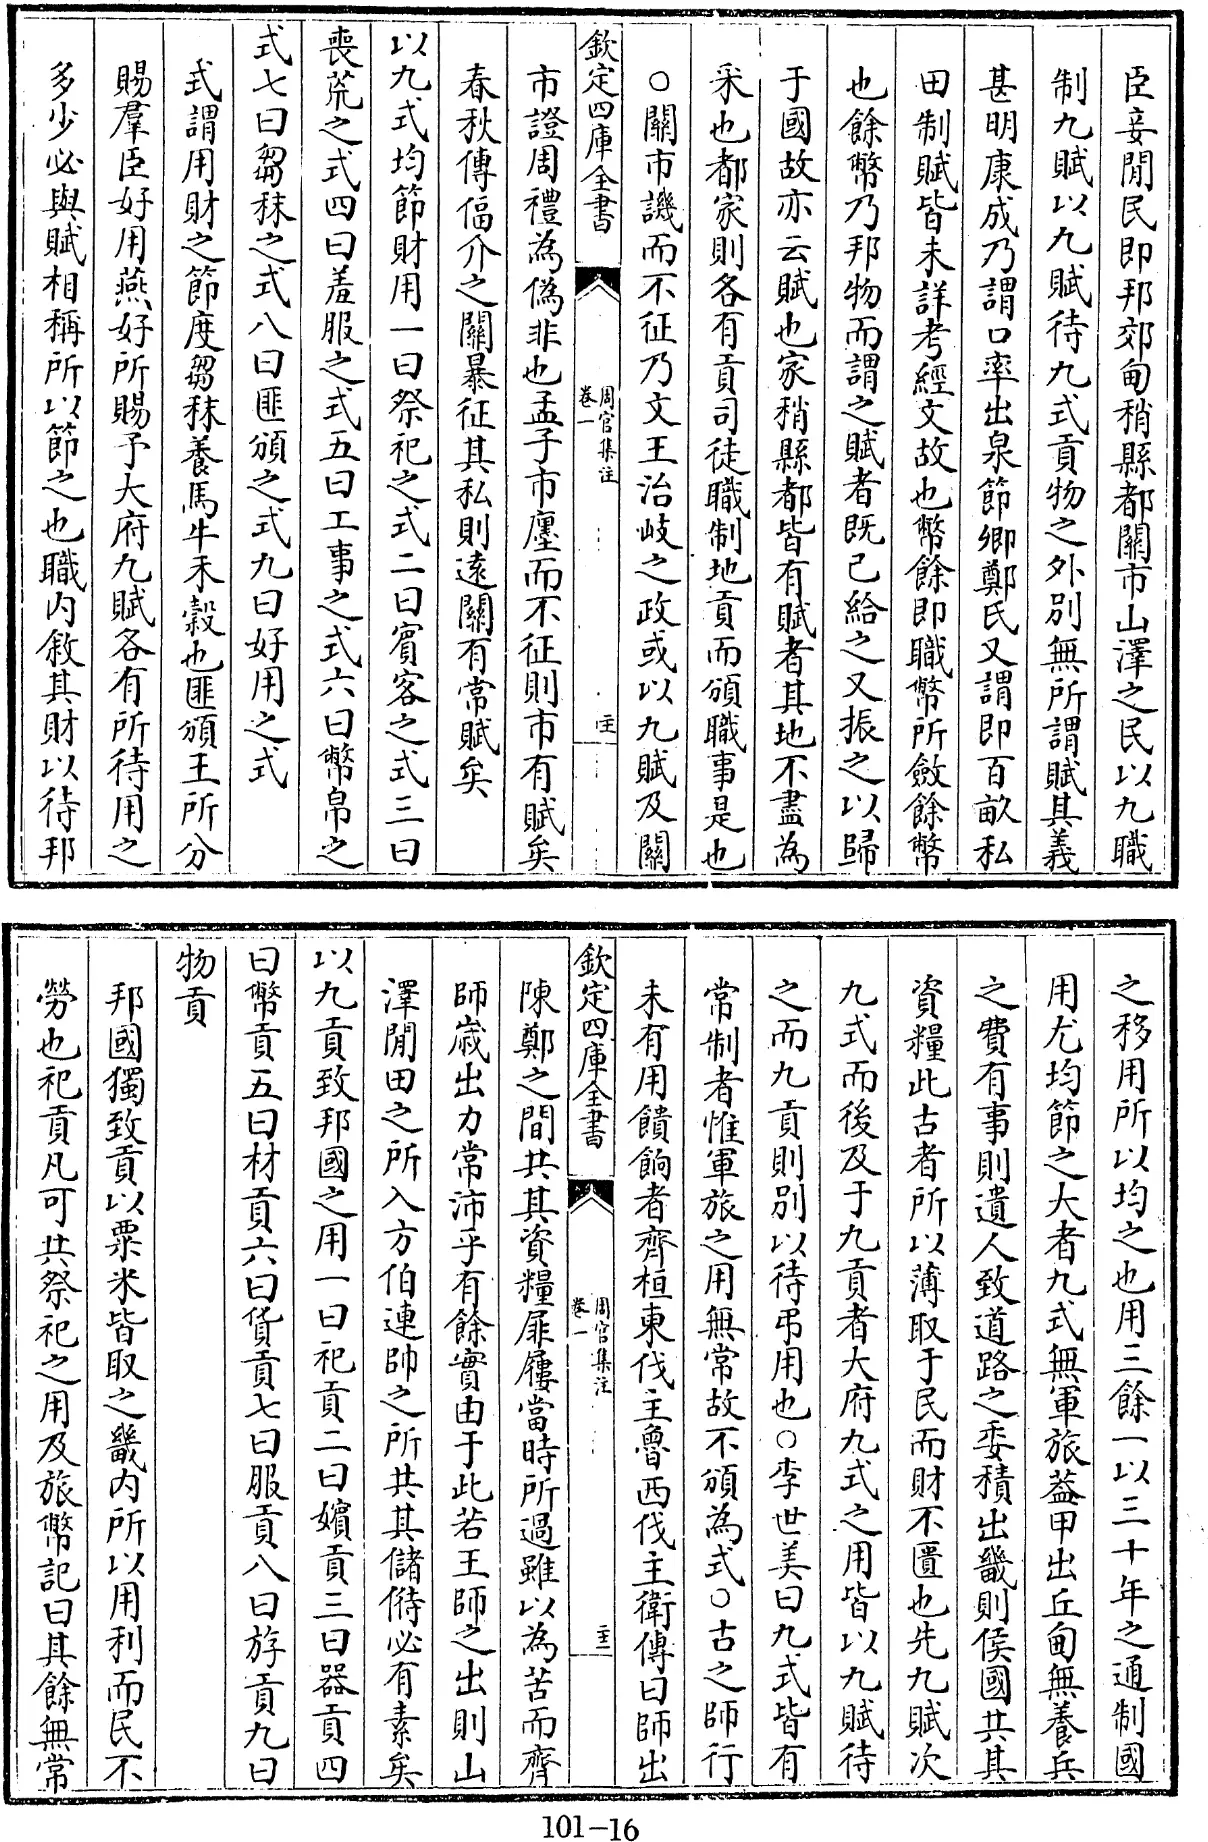 臣妾閒民即邦郊甸稍縣都關市山澤之民以九職
制九賦以九賦待九式貢物之外別無所謂賦其義
甚明康成乃謂口率出泉節卿鄭氏又謂即百畝私
田制賦皆未詳考經文故也幣餘即職幣所斂餘幣
也餘幣乃邦物而謂之賦者既已給之又振之以歸
于國故亦云賦也家稍縣都皆有賦者其地不盡為
采也都家則各有貢司徒職制地貢而頒職事是也
○關市譏而不征乃文王治岐之政或以九賦及關
欽定四庫全書
周官集注
卷一
市證周禮為偽非也孟子市廛而不征則市有賦矣
春秋傳偪介之關暴征其私則遠關有常賦矣
以九式均節財用一曰祭祀之式二曰賓客之式三曰
喪荒之式四曰羞服之式五曰工事之式六曰幣帛之
式七曰芻秣之式八曰匪頒之式九曰好用之式
式謂用財之節度芻秣養馬牛禾穀也匪頒王所分
賜羣臣好用燕好所賜予大府九賦各有所待用之
多少必與賦相稱所以節之也職內敘其財以待邦
之移用所以均之也用三餘一以三十年之通制國
用尤均節之大者九式無軍旅葢甲出丘甸無養兵
之費有事則遺人致道路之委積出畿則侯國共其
資糧此古者所以薄取于民而財不匱也先九賦次
九式而後及于九貢者大府九式之用皆以九賦待
之而九貢則別以待弔用也○李世美曰九式皆有
常制者惟軍旅之用無常故不頒為式○古之師行
未有用饋餉者齊桓東伐主魯西伐主衛傳曰師出
欽定四庫全書
周官集注
卷一
陳鄭之間共其資糧屝屨當時所過雖以為苦而齊
師歲出力常沛乎有餘實由于此若王師之出則山
澤閒田之所入方伯連帥之所共其儲偫必有素矣
以九貢致邦國之用一曰祀貢二曰嬪貢三曰器貢四
曰幣貢五曰材貢六曰貨貢七曰服貢八曰斿貢九曰
物貢
邦國獨致貢以粟米皆取之畿內所以用利而民不
勞也祀貢凡可共祭祀之用及旅幣記曰其餘無常
101-16